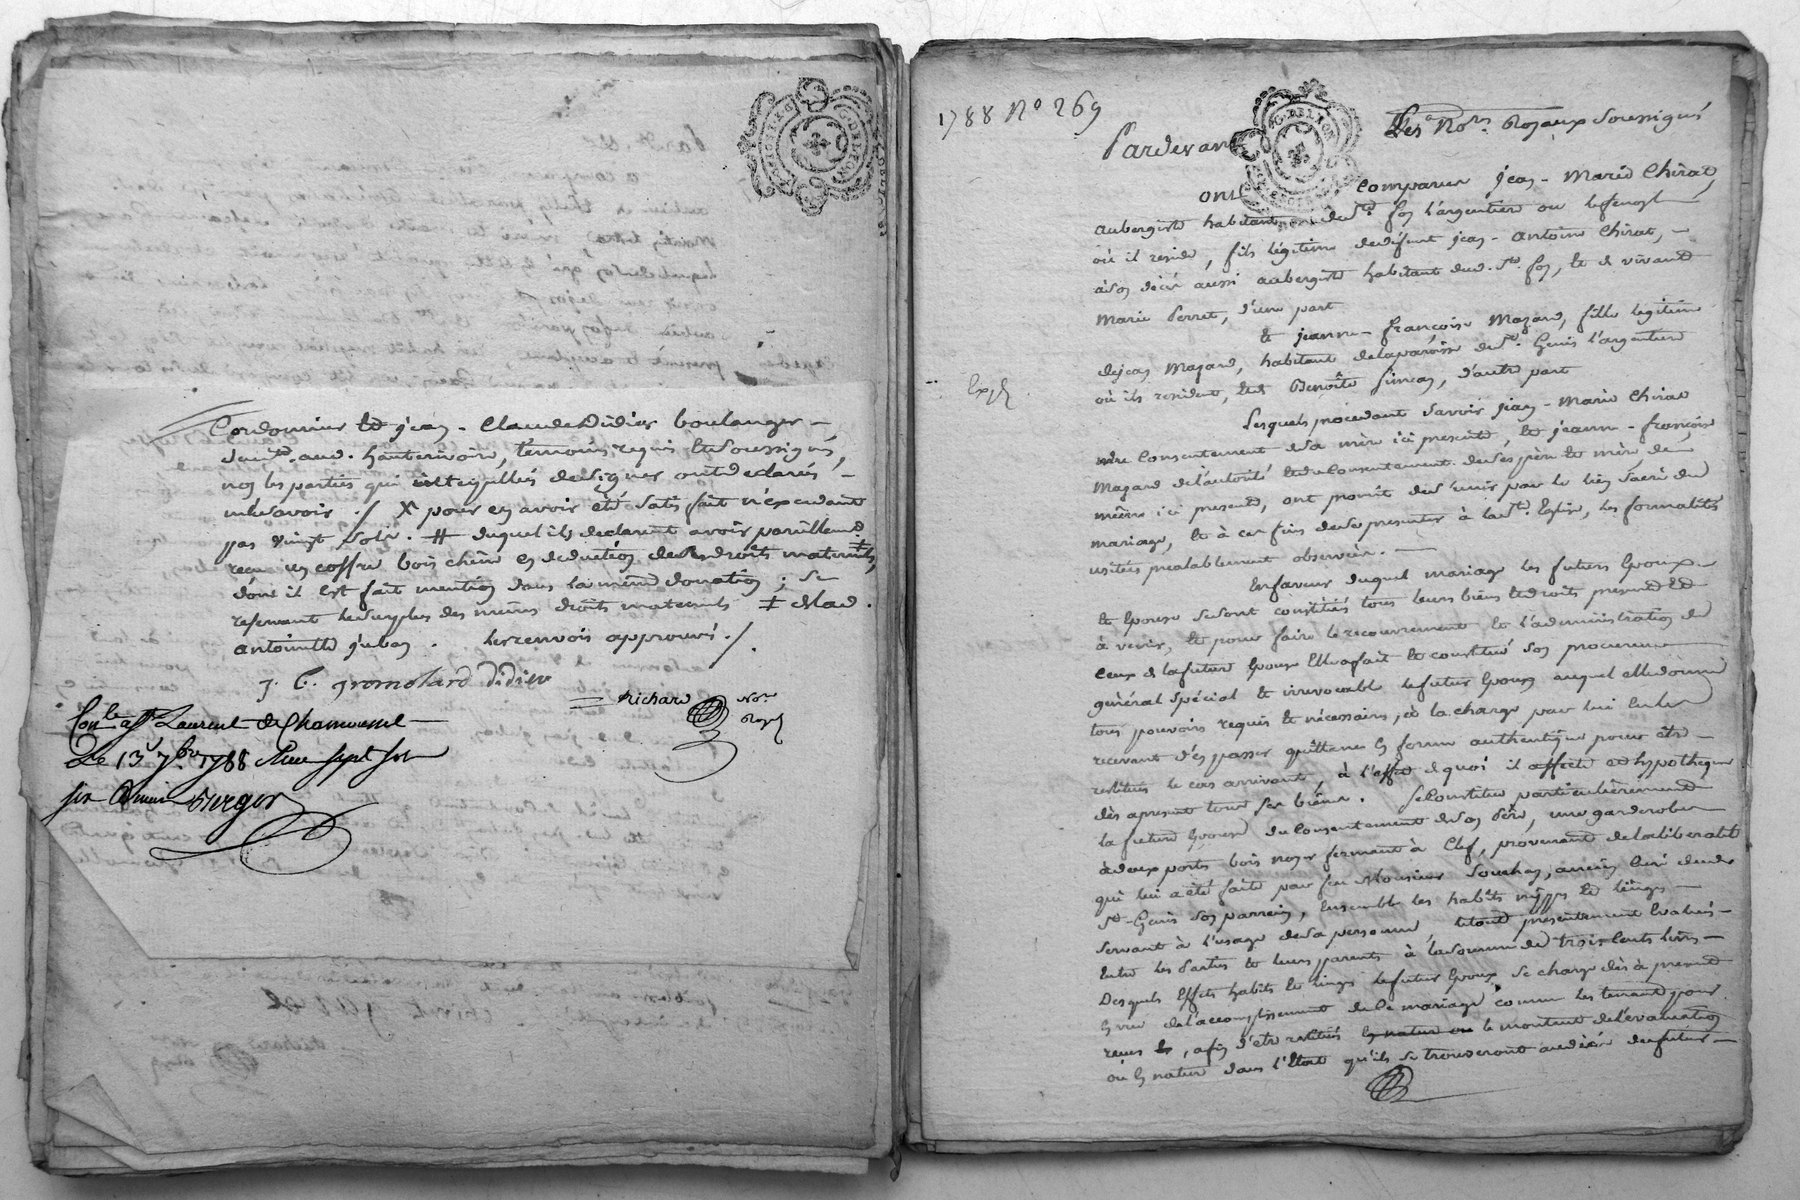 Cordonnier et jean-Claude Didier boulanger
dud. hauterivoire, temoins requis et soussignés,
non les parties qui interpellées de signer ont declarés
ne le savoir ./ X pour en avoir été satisfait n'excedant
pas vingt sols. # duquel ils declarent avoir pareillemt
recu un coffre bois chêne en deduction de ses droits maternels ‡
dont il est fait mention dans la même donation ; se
reservant le surplus des mêmes droits maternels ‡ de lad.
antoinette juban . les renvois approuvés ./.
J. C. gromolard didier
Richard Nore
Royal
Conlé a St Laurent de Chamousset
Le 13 7bre 1788 Recu sept sols
six deniers Berger
G. DE LYON
1788 No 269
Pardevant Les Nores Royaux Soussignés
ont comparu jean-Marie Chirat,
aubergiste habitant de Ste foy l'argentiere
où il reside, fils légitime de defunt jean-Antoine Chirat,
à son décès aussi aubergiste habitant dud. Ste foy, et de vivante
Marie Perret, d'une part
et jeanne-françoise Mazard, fille legitime
de jean Mazard, habitant de la paroisse de St. Genis l'argentiere
où ils resident, et de Benoîte , d'autre part
Expé
Lesquels procedant savoir jean-Marie Chirat
de consentement de sa mère ici presente, et jeanne-françoise
Mazard de l'autorité et du consentement de ses père et mère de
même ici present, ont promit de s'unir par le lien sacré du
mariage, et à ces fins de se presenter à la Ste Eglise, les formalités
usitées prealablement observées.
En faveur duquel mariage les futurs Epoux
et Epouse se sont constitués tous leurs biens et droits present et
à venir, et pour faire le recouvrement et l'administration de
ceux de la future Epouse Elle a fait et constitué son procureur
général spécial et irrevocable le futur Epoux auquel elle donne
tous pouvoirs requis et nécessaires, à la charge par lui en les
recevant d'en passer quittance en forme authentique pour être
restitués le cas arrivant, à l'effet de quoi il affecte et hypotheque
dès apresent tous ses biens. Se Constitue particulièrement
la future Epouse du consentement de son Père, une garderobe
à deux portes bois noyer fermant à Clef, provenant de la liberalité
qui lui a été faite par feu Monsieur Souchay, ancien Curé dudit
St-Genis son parrein, Ensemble les habits nippes et linges
servant à l'usage de sa personne, le tout presentement Evalués
Entre les Parties et leurs parents à la somme de trois cents livres
Desquels Effets habits et linges le futur Epoux se charge dès à present
En vue de l'accomplissement de ce mariage comme les tenant pour
reçus, afin d'etre restitués en nature ou le montant de l'évaluation
ou en nature dans l'Etat qu'ils se trouveront au décès du futur